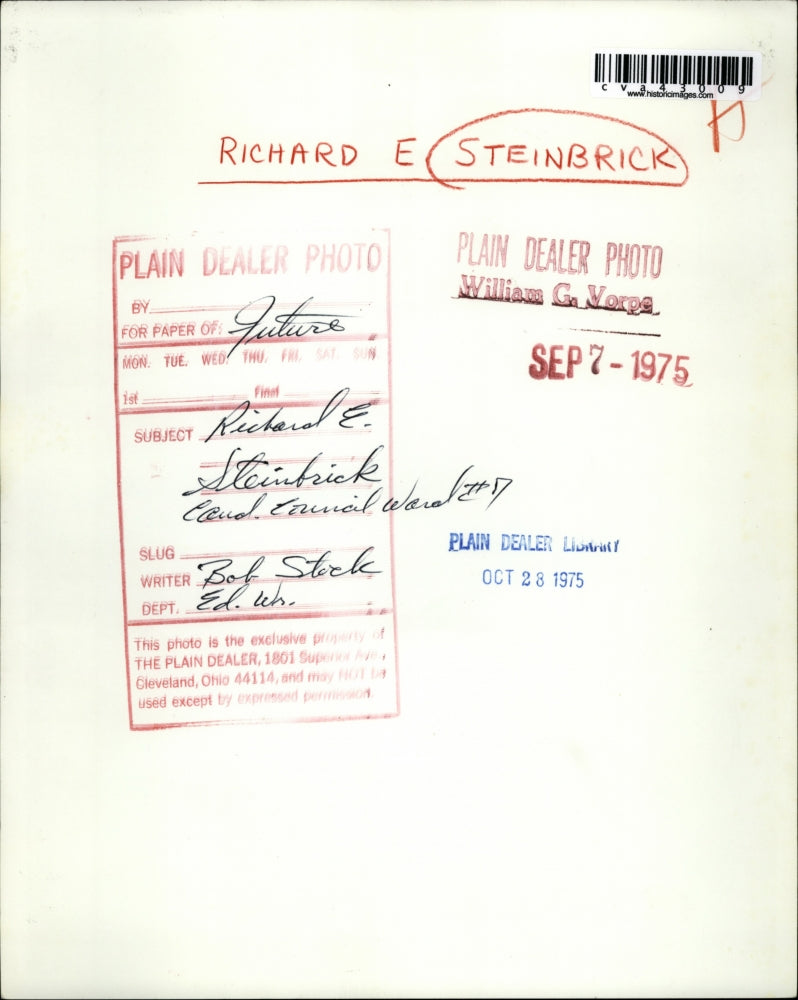 cva43009
www.historicimages.com
RICHARD E STEINBRICK
PLAIN DEALER PHOTO
BY
FOR PAPER OF: Future
MON. TUE. WED. THU. FRI. SAT. SUN.
1st Final
SUBJECT Richard E.
Steinbrick
Cand. Council Ward #17
SLUG
WRITER Bob Stock
DEPT. Ed. Wr.
This photo is the exclusive property of
THE PLAIN DEALER, 1801 Superior Ave.,
Cleveland, Ohio 44114, and may NOT be
used except by expressed permission.
PLAIN DEALER PHOTO
William G. Vorpe
SEP 7 - 1975
PLAIN DEALER LIBRARY
OCT 28 1975